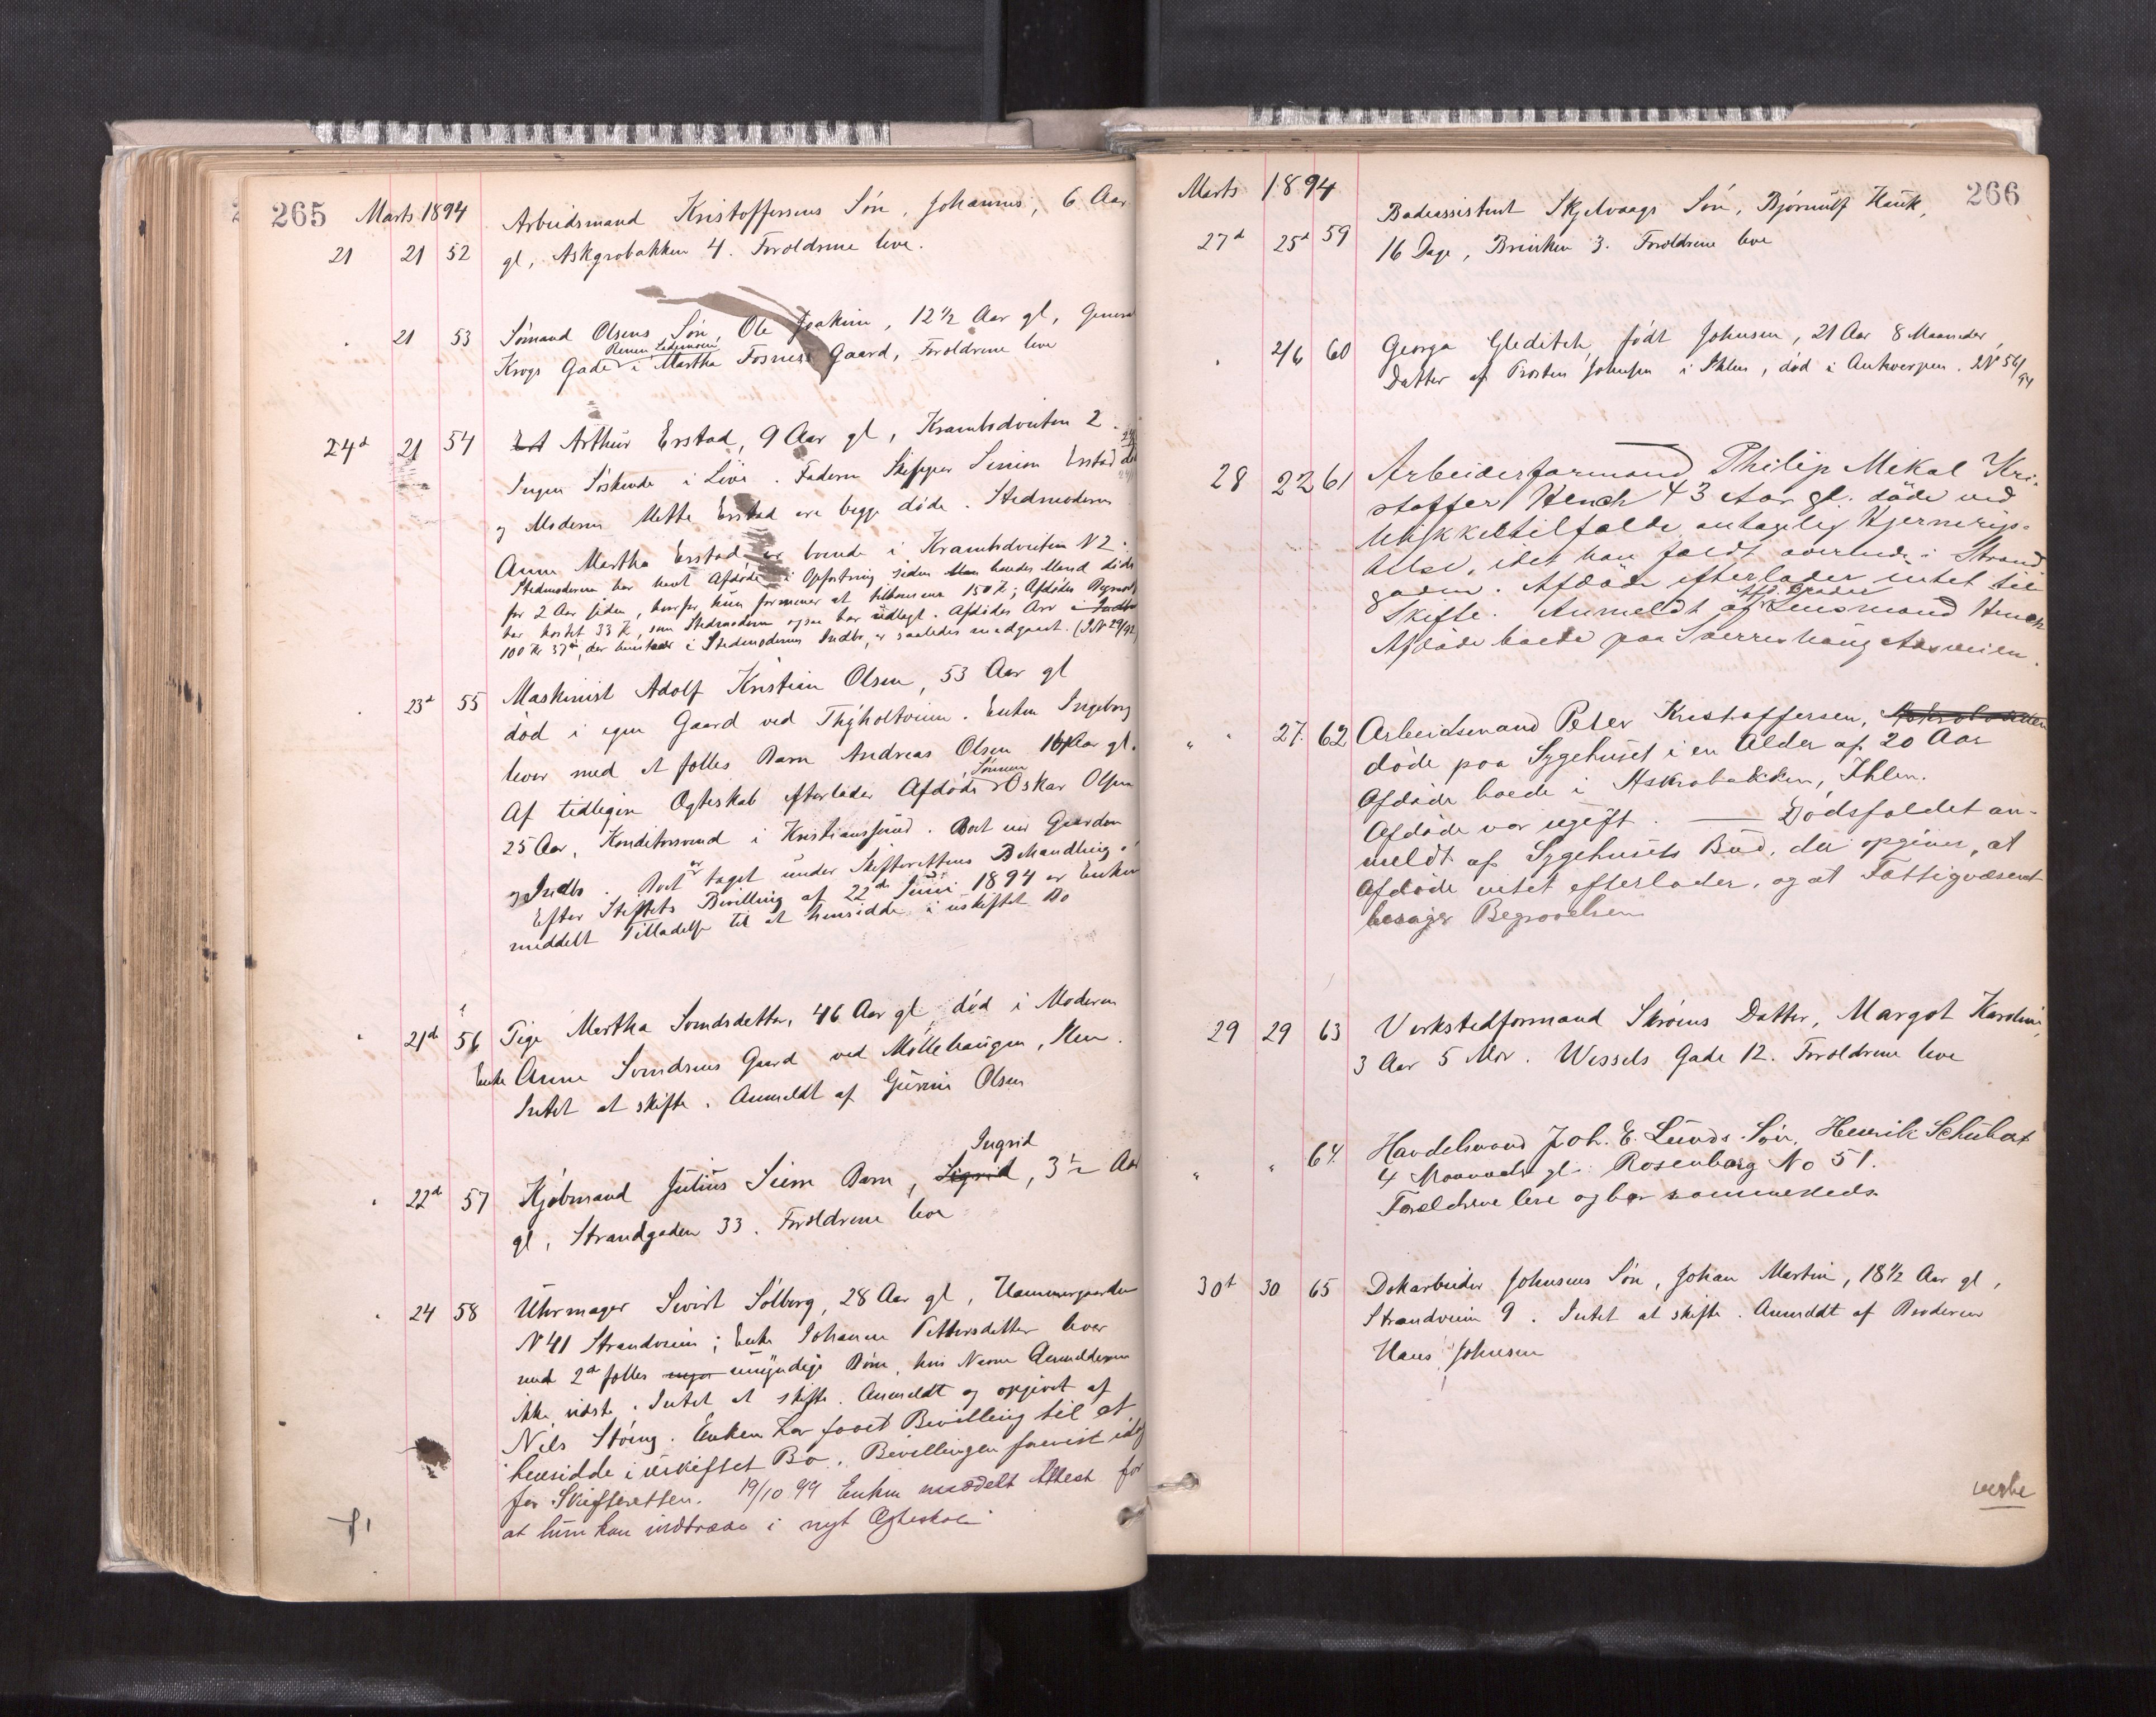 265 Marts 1894
21 21 52 Arbeidsmand Kristoffersens Søn, Johannes, 6 Aar
gl, Askgrobakken 4. Forældrene leve.
" 21 53 Sömand Olsens Søn, Ole Joakim, 12 1/2 Aar gl, General
Krogs Gade i Martha Fosnes Gaard, Forældrene leve
24d 21 54 Arthur Erstad, 9 Aar gl, Krambodveiten 2.
Ingen Søskende i Live. Faderen Skipper Simon Erstad
og Moderen Mette Erstad ere begge døde. Stedmoderen
Anne Martha Erstad er boende i Krambodveiten N 2.
Stedmoderen har havt Afdøde i Opfostring siden hendes Mand døde
for 2 Aar siden, hvorfor hun formener at tilkomme 150 K; Afdødes Begravelse
har kostet 33 K, som Stedmoderen ogsaa har udlagt. Afdødes Arv
100 Kr 37 ø, der henstaar i Stedmoderens Indbo, er saaledes medgaaet. (J N 29/92)
" 23d 55 Maskinist Adolf Kristian Olsen, 53 Aar gl
død i egen Gaard ved Thyholtveien. Enken Ingeborg
lever med et fælles Barn Andreas Olsen 16 Aar gl.
Af tidligere Ægteskab efterlader Afdøde Sønnen Oskar Olsen
25 Aar, Konditorsvend i Kristianssund. Boet eier Gaarden
og Indbo. Boet er taget under Skifterettens Behandling.
Efter Stiftets Bevilling af 22de Juni 1894 er Enken
meddelt Tilladelse til at hensidde i uskiftet Bo
" 21d 56 Pige Martha Svendsdatter, 46 Aar gl død i Moderen
Enke Anne Svendsens Gaard ved Møllehaugen, Ilen.
Intet at skifte. Anmeldt af Gurine Olsen
" 22d 57 Kjøbmand Julius Siem Barn, Sigrid Ingrid, 3 1/2 Aar
gl, Strandgaden 33. Forældrene leve
" 24 58 Uhrmager Sivert Solberg, 28 Aar gl, Hammergaarden
N 41 Strandveien; Enke Johanne Pettersdatter lever
med 2d fælles umyndige Børn, hvis Navne Anmelderen
ikke vidste. Intet at skifte. Anmeldt og opgivet af
Nils Støing. Enken har faaet Bevilling til at
hensidde i uskiftet Bo. Bevillingen forevist idag
for Skifteretten. 19/10 99 Enken meddelt Attest for
at hun kan indtræde i nyt Ægteskab
Marts 1894 266
27d 25d 59 Badeassistent Skjelvaags Søn, Bjørnulf Hauk,
16 Dage, Brinken 3. Forældrene leve
" 2/6 60 Georga Gleditsch født Johnsen, 21 Aar 8 Maaneder,
Datter af Thorsten Johnsen i Ihlen, død i Antwerpen. J N 56/94
28 22 61 Arbeidsformand Philip Mikal Kri-
stoffer Hench 43 Aar gl. døde ved
Ulykkestilfælde antagelig Hjernerys-
telse, idet han faldt overende i Strand-
gaden. Afdøde efterlader intet til
Skifte. Anmeldt af Afd. Broder Lensmand Hench
Afdøde boede paa Sverreshaug Aasveien.
" " 27. 62 Arbeidsmand Peter Kristoffersen,
døde paa Sygehuset i en Alder af 20 Aar
Afdøde boede i Askrobakken, Ihlen.
Afdøde var ugift. — Dødsfaldet an-
meldt af Sygehusets Bud, der opgiver, at
Afdøde intet efterlader, og at Fattigvæsenet
besørger Begravelsen
29 29 63 Verkstedformand Skrøens Datter, Margot Karoline,
3 Aar 5 Mdr. Wessels Gade 12. Forældrene leve
" " 64. Handelsmand Joh. E. Lunds Søn, Henrik Schubert
4 Maaneder gl. Rosenborg No 51.
Forældrene leve og bor sammesteds.
30t 30 65 Dokarbeider Johnsens Søn, Johan Martin, 18 1/2 Aar gl,
Strandveien 9. Intet at skifte. Anmeldt af Broderen
Hans Johnsen